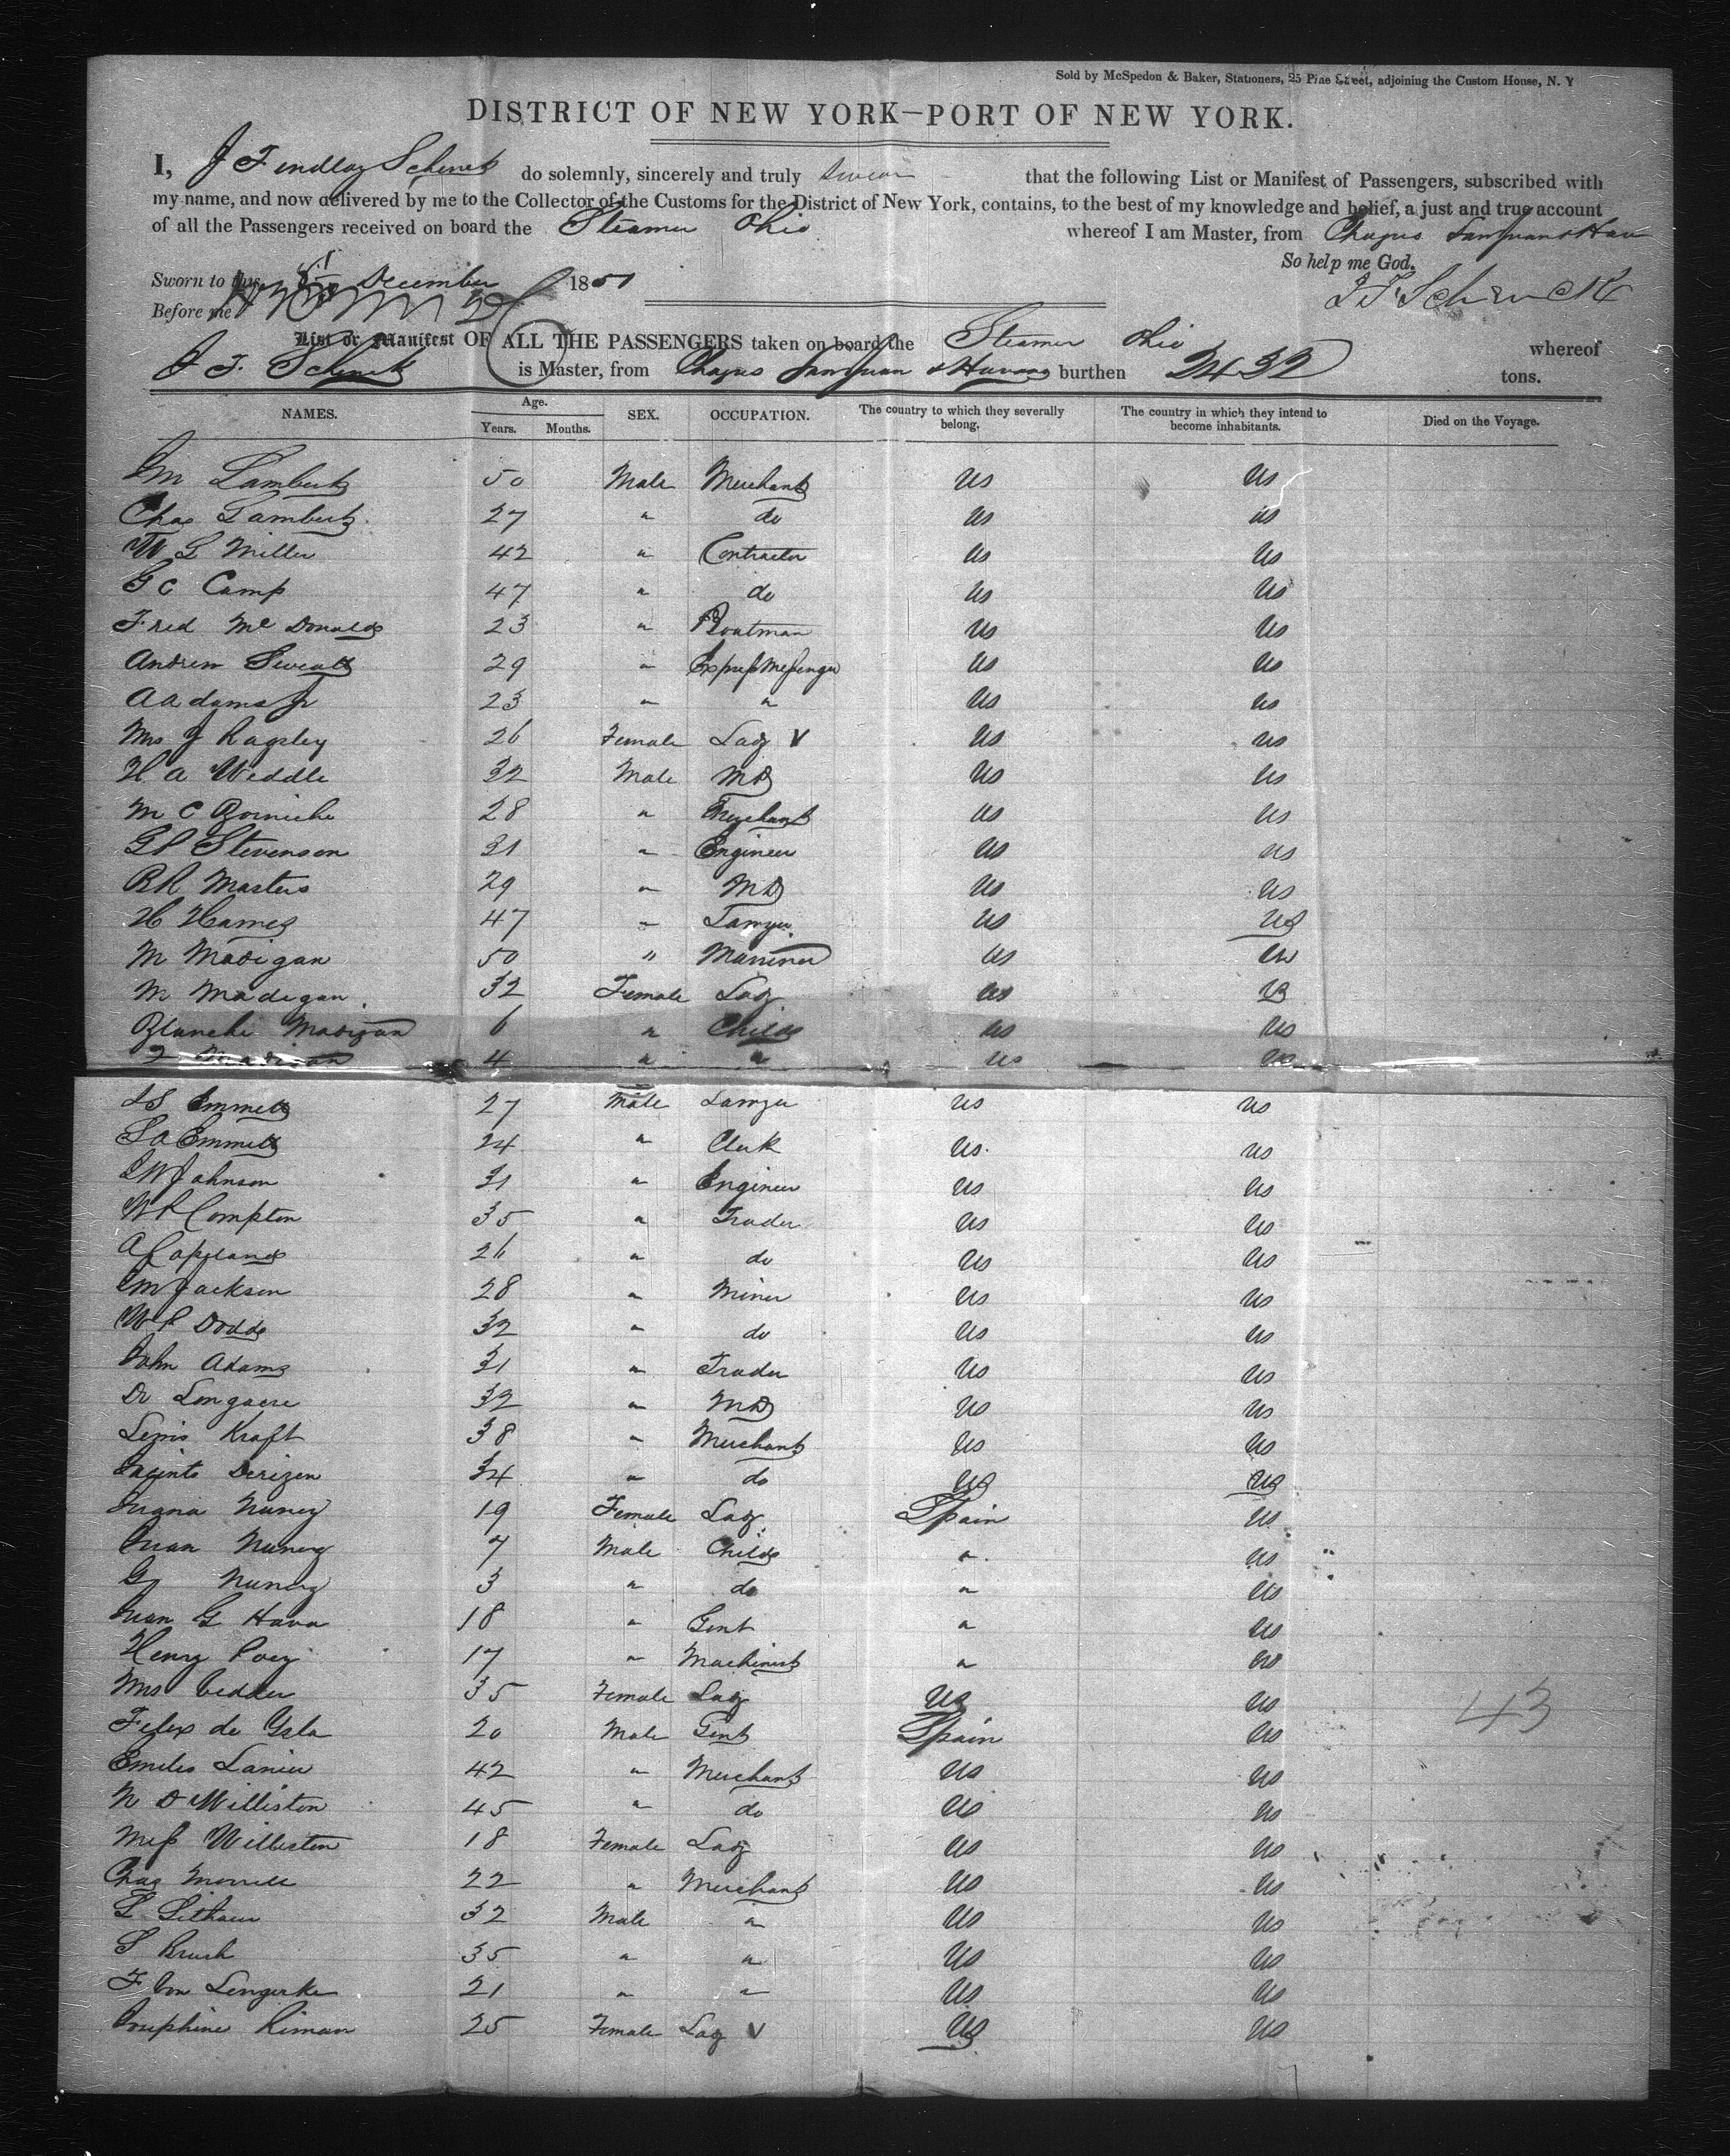 Sold by McSpedon & Baker, Stationers, 25 Pine Street, adjoining the Custom House, N. Y
DISTRICT OF NEW YORK—PORT OF NEW YORK.
I, J Findlay Schenck do solemnly, sincerely and truly swear that the following List or Manifest of Passengers, subscribed with
my name, and now delivered by me to the Collector of the Customs for the District of New York, contains, to the best of my knowledge and belief, a just and true account
of all the Passengers received on board the Steamer Ohio whereof I am Master, from Chagres San Juan & Hav
So help me God.
Sworn to this December 1851
J F Schenck
Before me
List or Manifest OF ALL THE PASSENGERS taken on board the Steamer Ohio whereof
J F Schenck is Master, from Chagres San Juan & Havana burthen 2432 tons.
NAMES. Age. Years. Months. SEX. OCCUPATION. The country to which they severally belong. The country in which they intend to become inhabitants. Died on the Voyage.
Lambert 50 Male Merchant US US
Chas Lambert 27 " do US US
W L Miller 42 " Contractor US US
G C Camp 47 " do US US
Fred Mc Donald 23 " Boatman US US
Andrew Sweatt 29 " Express Messenger US US
A Adams Jr 23 " " US US
Mrs J Ragsley 26 Female Lady V US US
H A Weddle 32 Male MD US US
M C 28 " Merchant US US
Stevenson 31 " Engineer US US
B R Masters 29 " MD US US
H Hames 47 " Lawyer US US
M Madigan 50 " Mariner US US
M Madigan 32 Female Lady US US
Blanche Madigan 6 " Child US US
Madigan 4 " " US US
Emmett 27 Male Lawyer US US
Emmett 24 " Clerk US US
Johnson 31 " Engineer US US
Compton 35 " Trader US US
A Copeland 26 " do US US
Jackson 28 " Miner US US
Dodds 32 " do US US
John Adams 31 " Trader US US
Dr Longacre 32 " MD US US
Lewis Kraft 38 " Merchant US US
Jacinto 34 " do US US
Nunez 19 Female Lady Spain US
Juan Nunez 7 Male Child " US
G Nunez 3 " do " US
Juan G Hava 18 " Gent " US
Henry Poey 17 " Machinist " US
Mrs Vedder 35 Female Lady US US
Felix de Ysla 20 Male Gent Spain US
43
Emeles Lanier 42 " Merchant US US
N D Williston 45 " do US US
Miss Williston 18 Female Lady US US
Chas Morrell 22 " Merchant US US
L 32 Male " US US
S Brush 35 " " US US
F Von Lengerke 21 " " US US
Josephine Riman 25 Female Lady V US US